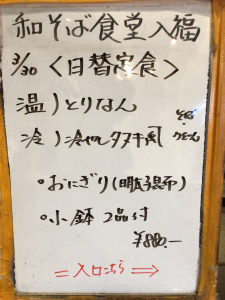 和そば食堂入福
3/30 〈日替定食〉
温）とりなん
冷）冷やしタヌキ風
そば
・
うどん
・おにぎり(明太昆布)
・小鉢 2品付
¥880ー
＝入口こちら⇒